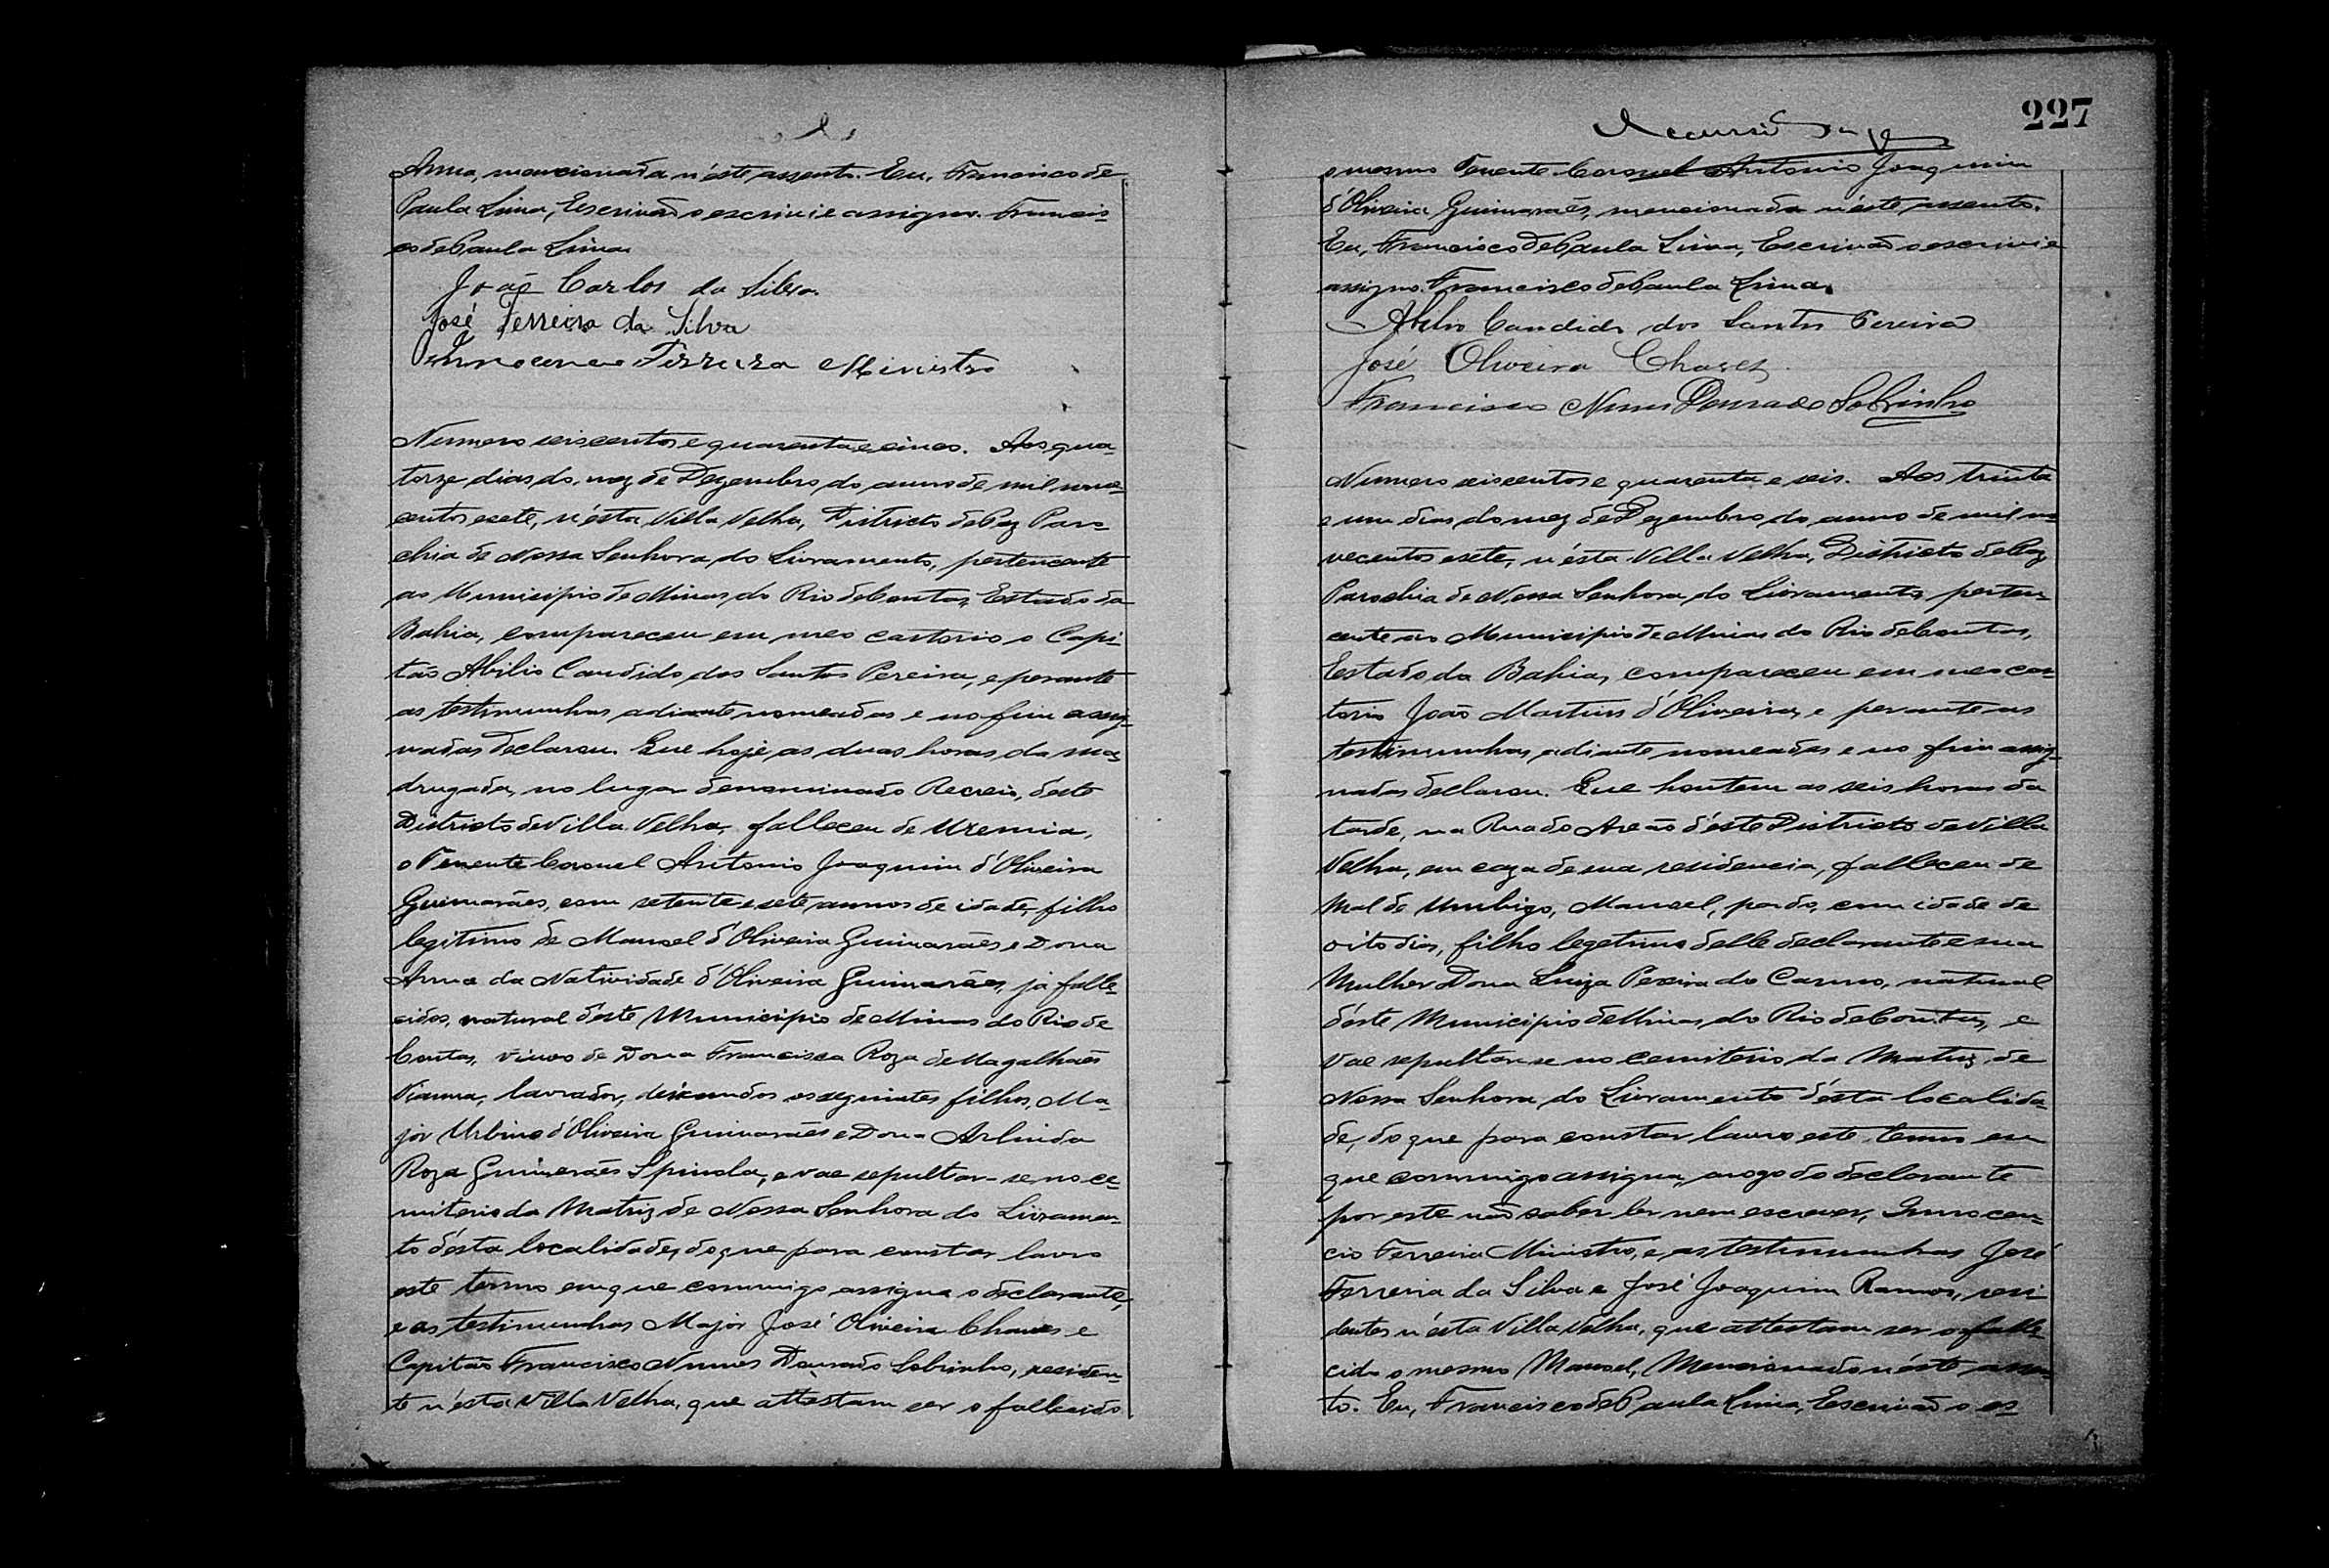 Anna, mencionada n'éste assento. Eu, Francisco de
Paula Lima, Escrivão o escrivi e assigno. Francis-
co de Paula Lima
João Carlos da Silva
José Ferreira da Silva
Innocencio Ferreira Ministro
Numero seiscentos e quarenta e cinco. Aos qua-
torze dias do mez de Dezembro do anno de mil nove-
centos e sete, n'ésta Villa Velha, Districto de Paz Paro-
chia de Nossa Senhora do Livramento, pertencente
ao Municipio de Minas do Rio de Contas, Estado da
Bahia, compareceu em meo cartorio o Capi-
tão Abilio Candido dos Santos Pereira, e perante
as testimunhas adiante nomeadas e no fim assig-
nadas declarou. Que hoje as duas horas da ma-
drugada, no lugar denominado Recreio, d'éste
Districto de Villa Velha, falleceu de Uremia,
o Tenente Coronel Antonio Joaquim d'Oliveira
Guimarães, com setenta e sete annos de idade, filho
legitimo de Manoel d'Oliveira Guimarães e Dona
Anna da Natividade d'Oliveira Guimarães, já falle-
cidos, natural d'éste Municipio de Minas do Rio de
Contas, viuvo de Dona Francisca Roza de Magalhães
Vianna, lavrador, deixando os seguintes filhos, Ma-
jor Urbino d'Oliveira Guimarães e Dona Arlinda
Roza Guimarães Spinola, e vae sepultar-se no ce-
miterio da Matriz de Nossa Senhora do Livramen-
to d'ésta localidade, do que para constar lavro
este termo em que commigo assigna o declarante,
e as testimunhas Major José Oliveira Chaves e
Capitão Francisco Nunes Dourado Sobrinho, residen-
te n'ésta Villa Velha, que attestam ser o fallecido
227
o mesmo Tenente Coronel Antonio Joaquim
d'Oliveira Guimarães, mencionada n'éste assento.
Eu, Francisco de Paula Lima, Escrivão o escrivi e
assigno. Francisco de Paula Lima.
Abilio Candido dos Santos Pereira
José Oliveira Chaves
Francisco Nunes Dourado Sobrinho
Numero seiscentos e quarenta e seis. Aos trinta
e um dias do mez de Dezembro do anno de mil no-
vecentos e sete, n'ésta Villa Velha, Districto de Paz
Parochia de Nossa Senhora do Livramento, perten-
cente ao Municipio de Minas do Rio de Contas,
Estado da Bahia, compareceu em meo car-
torio João Martins d'Oliveira, e perante as
testimunhas adiante nomeadas e no fim assig-
nadas declarou. Que hontem as seis horas da
tarde, na Rua do Areão d'éste Districto de Villa
Velha, em caza de sua residencia, falleceu de
Mal de Umbigo, Manoel, pardo, com idade de
oito dias, filho legetimo delle declarante e sua
Mulher Dona Luiza Pereira do Carmo, natural
d'éste Municipio de Minas do Rio de Contas, e
vae sepultar-se no cemiterio da Matriz de
Nossa Senhora do Livramento d'ésta localida-
de, do que para constar lavro este termo em
que commigo assigna, arogo do declarante
por este não saber ler nem escrever, Innocen-
cio Ferreira Ministro, e as testimunhas José
Ferreira da Silva e José Joaquim Ramos, resi-
dentes n'ésta Villa Velha, que attestam ser o falle-
cido o mesmo Manoel, Mencionado n'éste assen-
to. Eu, Francisco de Paula Lima, Escrivão o es-